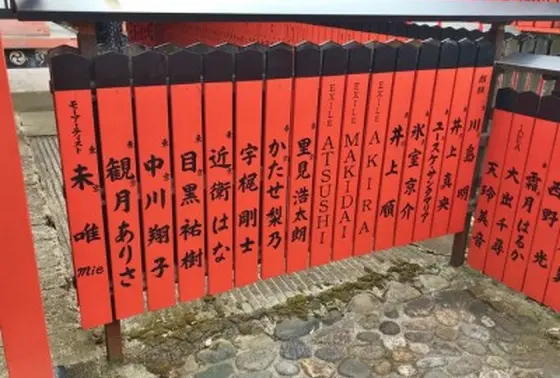 野 光
霜月はるか
大出千尋
天玲美音
麒麟 川島 明
井上真央
ユースケ・サンタマリア
氷室京介
井上 順
EXILE AKIRA
EXILE MAKIDAI
EXILE ATSUSHI
里見浩太朗
かたせ梨乃
宇梶剛士
近衛はな
目黒祐樹
中川翔子
観月ありさ
モーアーティスト 未唯 mie